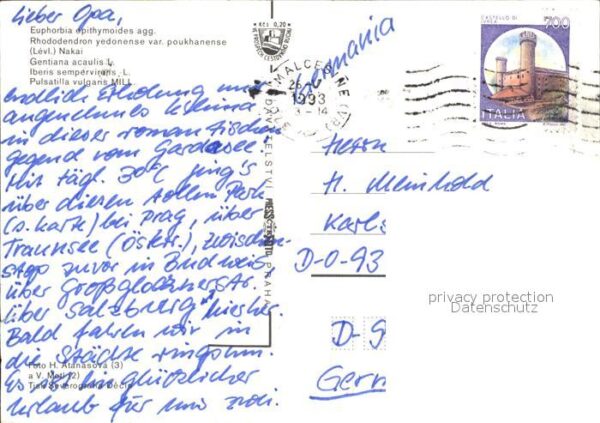 Lieber Opa,
Euphorbia epithymoides agg.
Rhododendron yedonense var. poukhanense
(Lévl.) Nakai
Gentiana acaulis L.
Iberis sempervirens L.
Pulsatilla vulgaris MILL.
endlich Erholung und
angenehmes Klima
in dieser romantischen
Gegend vom Gardasee.
Mit tägl. 30°C ging's
über diesen tollen Park
(s. Karte) bei Prag, über
Traunsee (Österr.), Zwischen-
stop zuvor in Budweis
über Großglocknerstr.
über Salzburg, hierher.
Bald fahren wir in
die Städte ringsum.
Es
glücklicher
Urlaub für uns zwei.
Foto H. Atanasová (3)
a V. Motl (2)
Tisk Severografia Děčín
Kčs 0,20
PRAHA
Germania
MALCESINE (VR)
1993
CASTELLO DI
IVREA
700
ITALIA
Herrn
H. Meinhold
Karls
D-0-93
D-9
Gern
privacy protection
Datenschutz